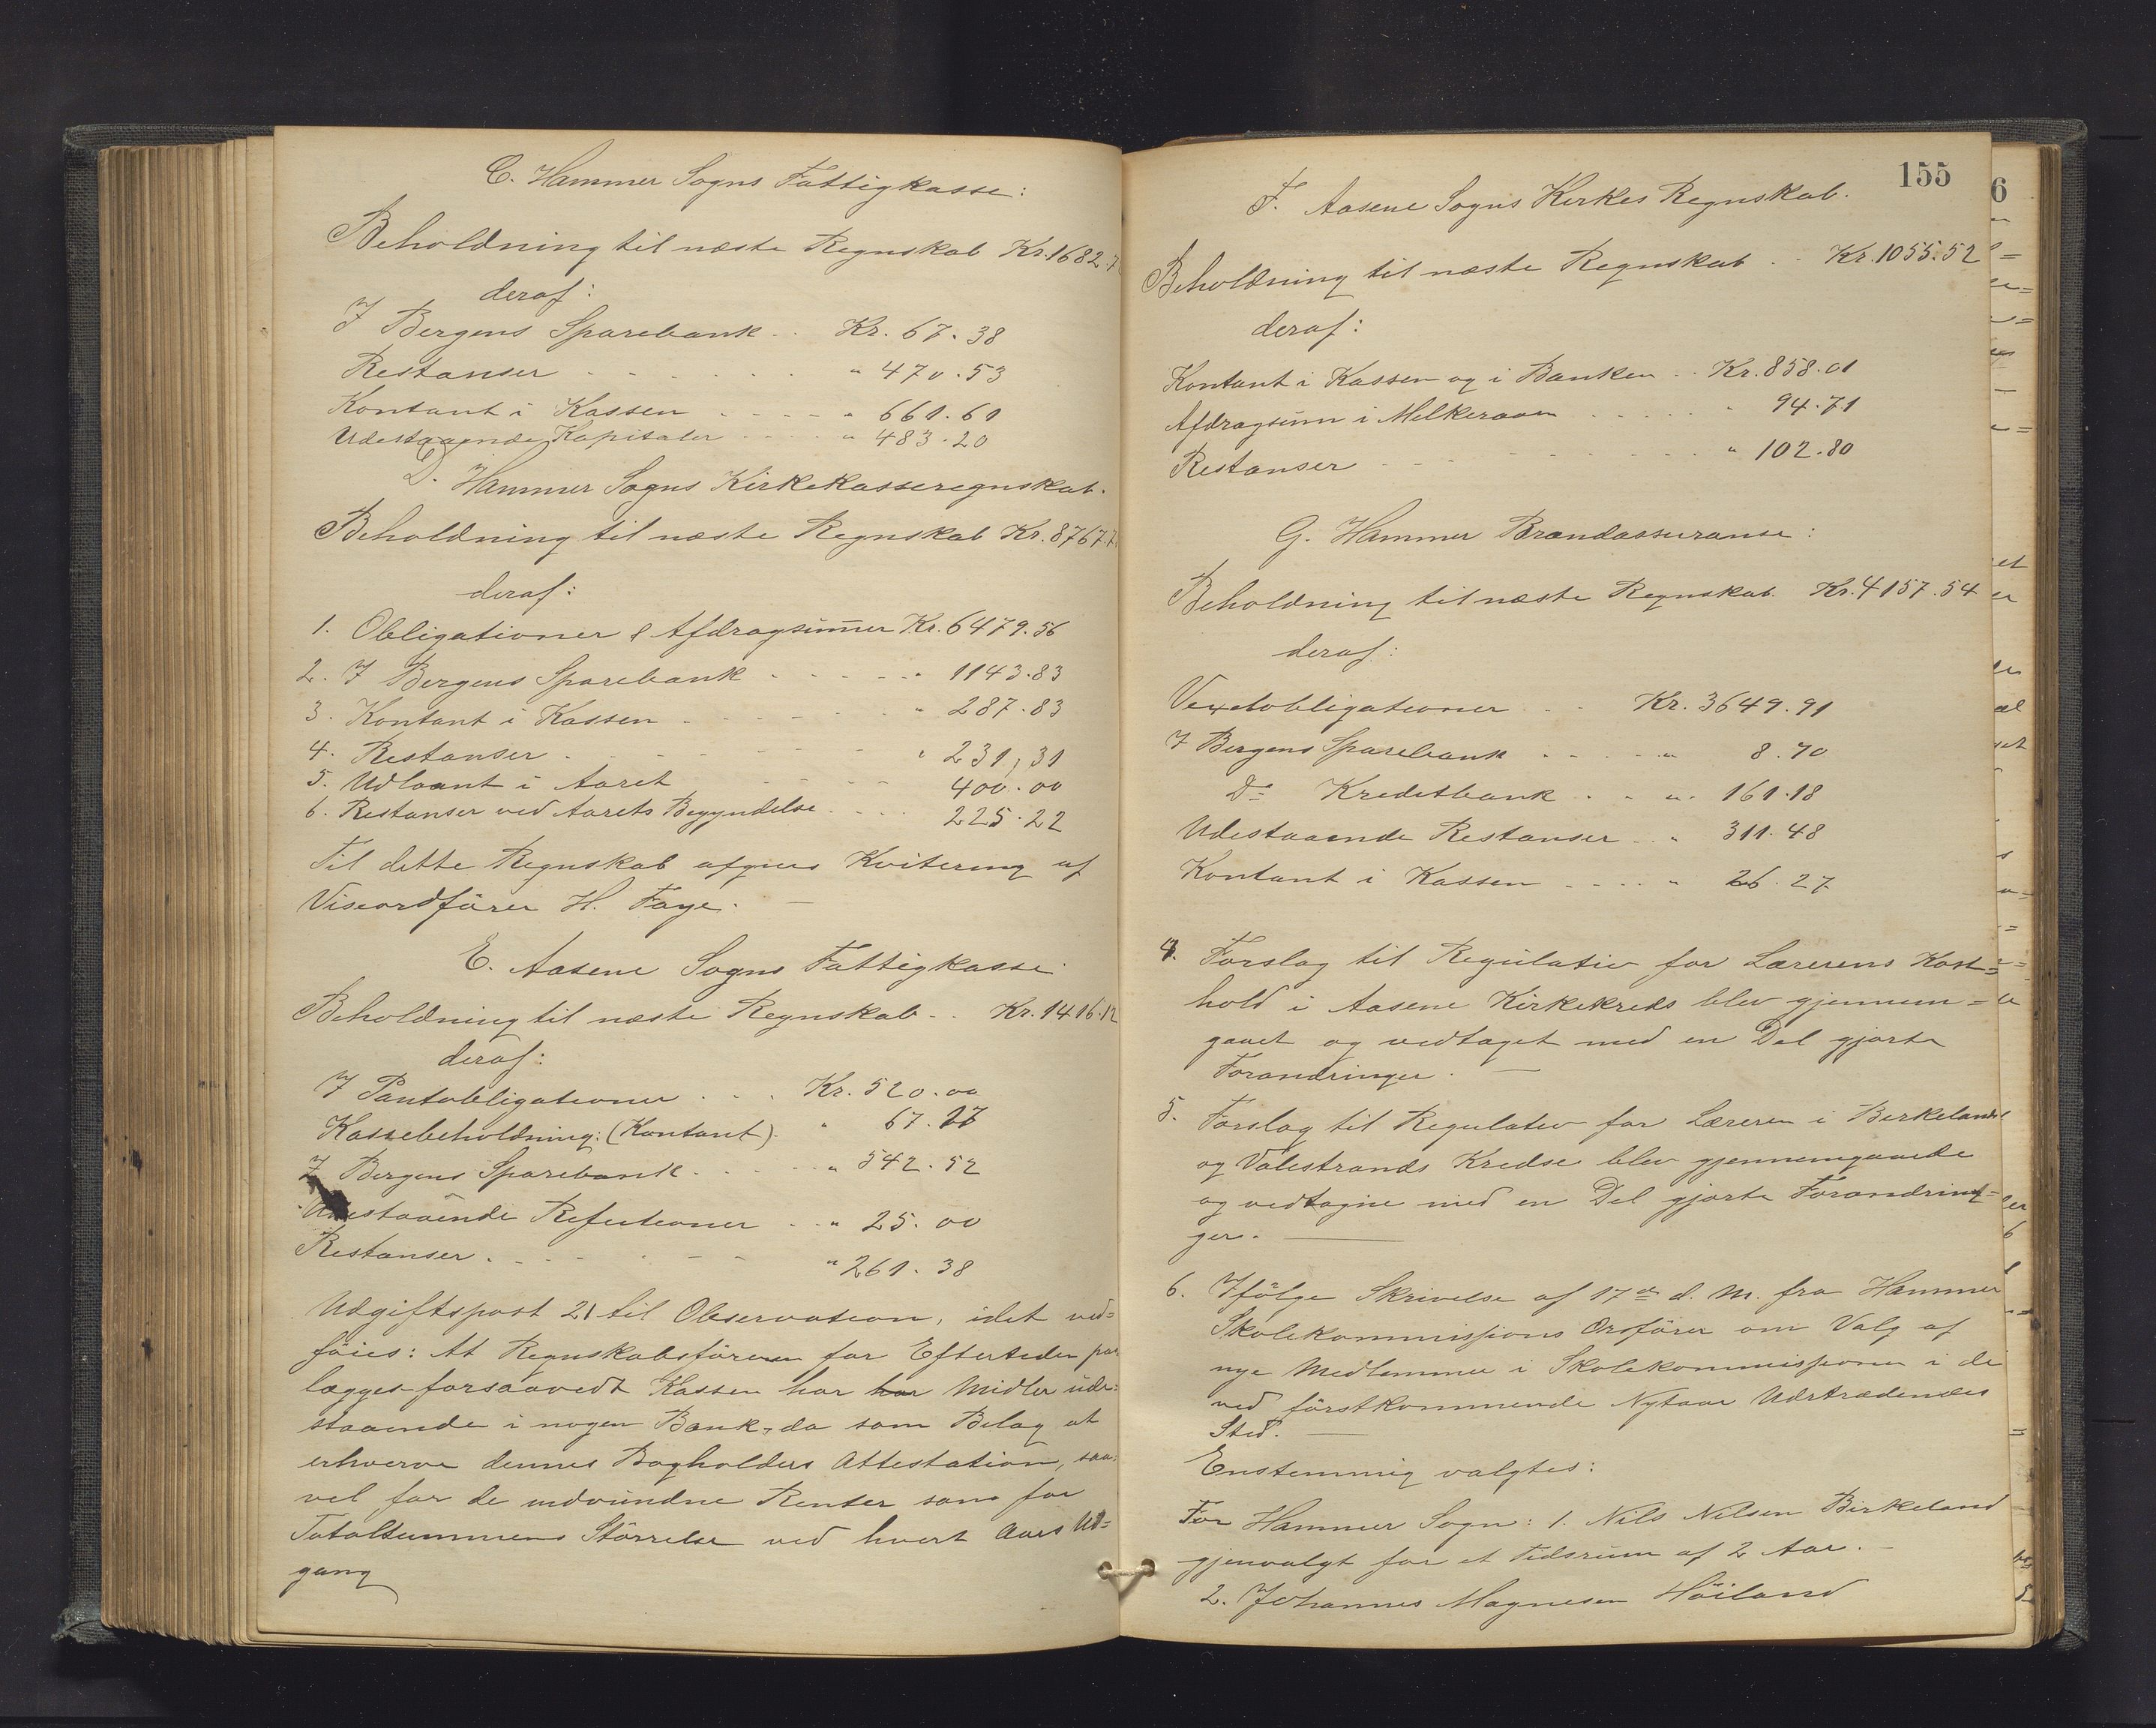 C. Hammer Sogns Fattigkasse:
Beholdning til næste Regnskab Kr. 1682.7
deraf:
I Bergens Sparebank . . Kr. 67.38
Restanser - - - - - - " 470.53
Kontant i Kassen - - - - " 661.61
Udestaaende Kapitaler - - - - " 483.20
D. Hammer Sogns Kirkekasseregnskab.
Beholdning til næste Regnskab Kr. 8767.7
deraf:
1. Obligationer & Afdragsum̄er Kr. 6479.56
2. I Bergens Sparebank - - - - - " 1143.83
3. Kontant i Kassen - - - - - - " 287.83
4. Restanser - - - - - - - " 231,31
5. Udlaant i Aaret - - - - 400.00
6. Restanser ved Aarets Begyndelse - - - - 225.22
Til dette Regnskab afgives Kvitering af
Viseordfører H. Faye. —
E. Aasene Sogns Fattigkasse
Beholdning til næste Regnskab - . Kr. 1416.12
deraf:
I Pantobligationer . . . Kr. 520.00
Kassebeholdning: (Kontant). " 67.17
I Bergens Sparebank - - - - - " 542.52
Udestaaende Refusioner - . " 25.00
Restanser - - - - - - " 261.38
Udgiftspost 21 til Observation, idet ved=
føies: At Regnskabsføreren for Eftertiden paa
lægges forsaavidt Kassen har har Midler ude=
staaende i nogen Bank, da som Bilag at
erhverve dennes Bogholders Attestation, saa=
vel for de indvundne Renter som for
Totalsummens Størrelse ved hvert Aars Ud=
gang
155
F. Aasene Sogns Kirkes Regnskab.
Beholdning til næste Regnskab . - Kr. 1055.52
deraf:
Kontant i Kassen og i Banken . . Kr. 858.01
Afdragsum i Melkeraaen - - - - - " 94.71
Restanser - - - - - - - - - " 102.80
G. Hammer Brandassuranse:
Beholdning til næste Regnskab Kr. 4157.54
deraf:
Vexelobligationer . . Kr. 3649.91
I Bergens Sparebank - - - - " 8.70
Do Kreditbank . - " - 161.18
Udestaaende Restanser - . " 311.48
Kontant i Kassen - - - - " 26.27
4. Forslag til Regulativ for Lærerens Kost=
hold i Aasene Kirkekreds blev gjennem=
gaaet og vedtaget med en Del gjorte
Forandringer. —
5. Forslag til Regulativ for Læreren i Birkeland
og Valestrands Kredse blev gjennemgaaede
og vedtagne med en Del gjorte Forandrin=
ger. —
6. Ifølge Skrivelse af 17de d. M. fra Hammer
Skolekommissions Ordfører om Valg af
nye Medlemmer i Skolekommissionen i de
ved førstkommende Nytaar Udtrædendes
Sted. —
Enstemmig valgtes:
For Hammer Sogn: 1. Nils Nilsen Birkeland
gjenvalgt for et Tidsrum af 2 Aar. —
2. Johannes Magnesen Høiland